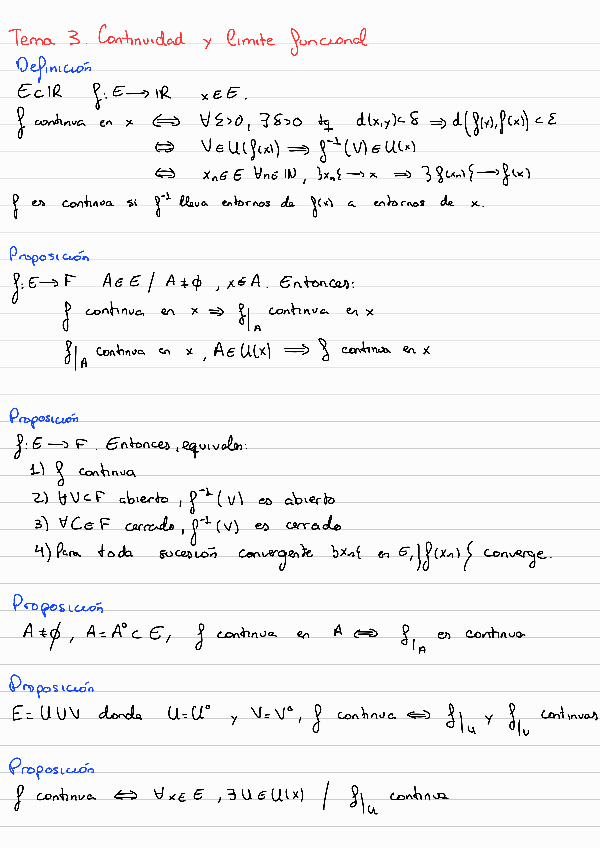 Tema 3. Continuidad y límite funcional
Definición
E⊂ℝ f:E→ℝ x∈E.
f continua en x ⟺ ∀ε>0, ∃δ>0 tq d(x,y)<δ ⟹ d(f(y),f(x))<ε
⟺ V∈U(f(x)) ⟹ f⁻¹(V)∈U(x)
⟺ xₙ∈E ∀n∈ℕ, }xₙ{→x ⟹ }f(xₙ){→f(x)
f es continua si f⁻¹ lleva entornos de f(x) a entornos de x.
Proposición
f:E→F A∈E / A≠∅, x∈A. Entonces:
f continua en x ⟹ f|A continua en x
f|A continua en x, A∈U(x) ⟹ f continua en x
Proposición
f:E→F. Entonces, equivalen:
1) f continua
2) ∀V⊂F abierto, f⁻¹(V) es abierto
3) ∀C∈F cerrado, f⁻¹(V) es cerrado
4) Para toda sucesión convergente }xₙ{ en E, }f(xₙ){ converge.
Proposición
A≠∅, A=A°⊂E, f continua en A ⟺ f|A es continua
Proposición
E=U∪V donde U=U° y V=V°, f continua ⟺ f|U y f|V continuas
Proposición
f continua ⟺ ∀x∈E, ∃U∈U(x) / f|U continua